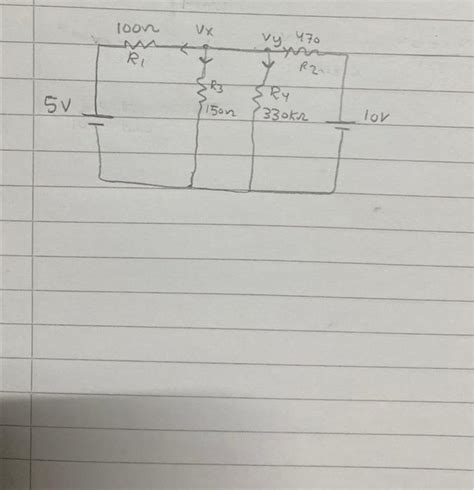 100Ω Vx Vy 470
R1 R2
R3 R4
5V 150Ω 330kΩ 10V